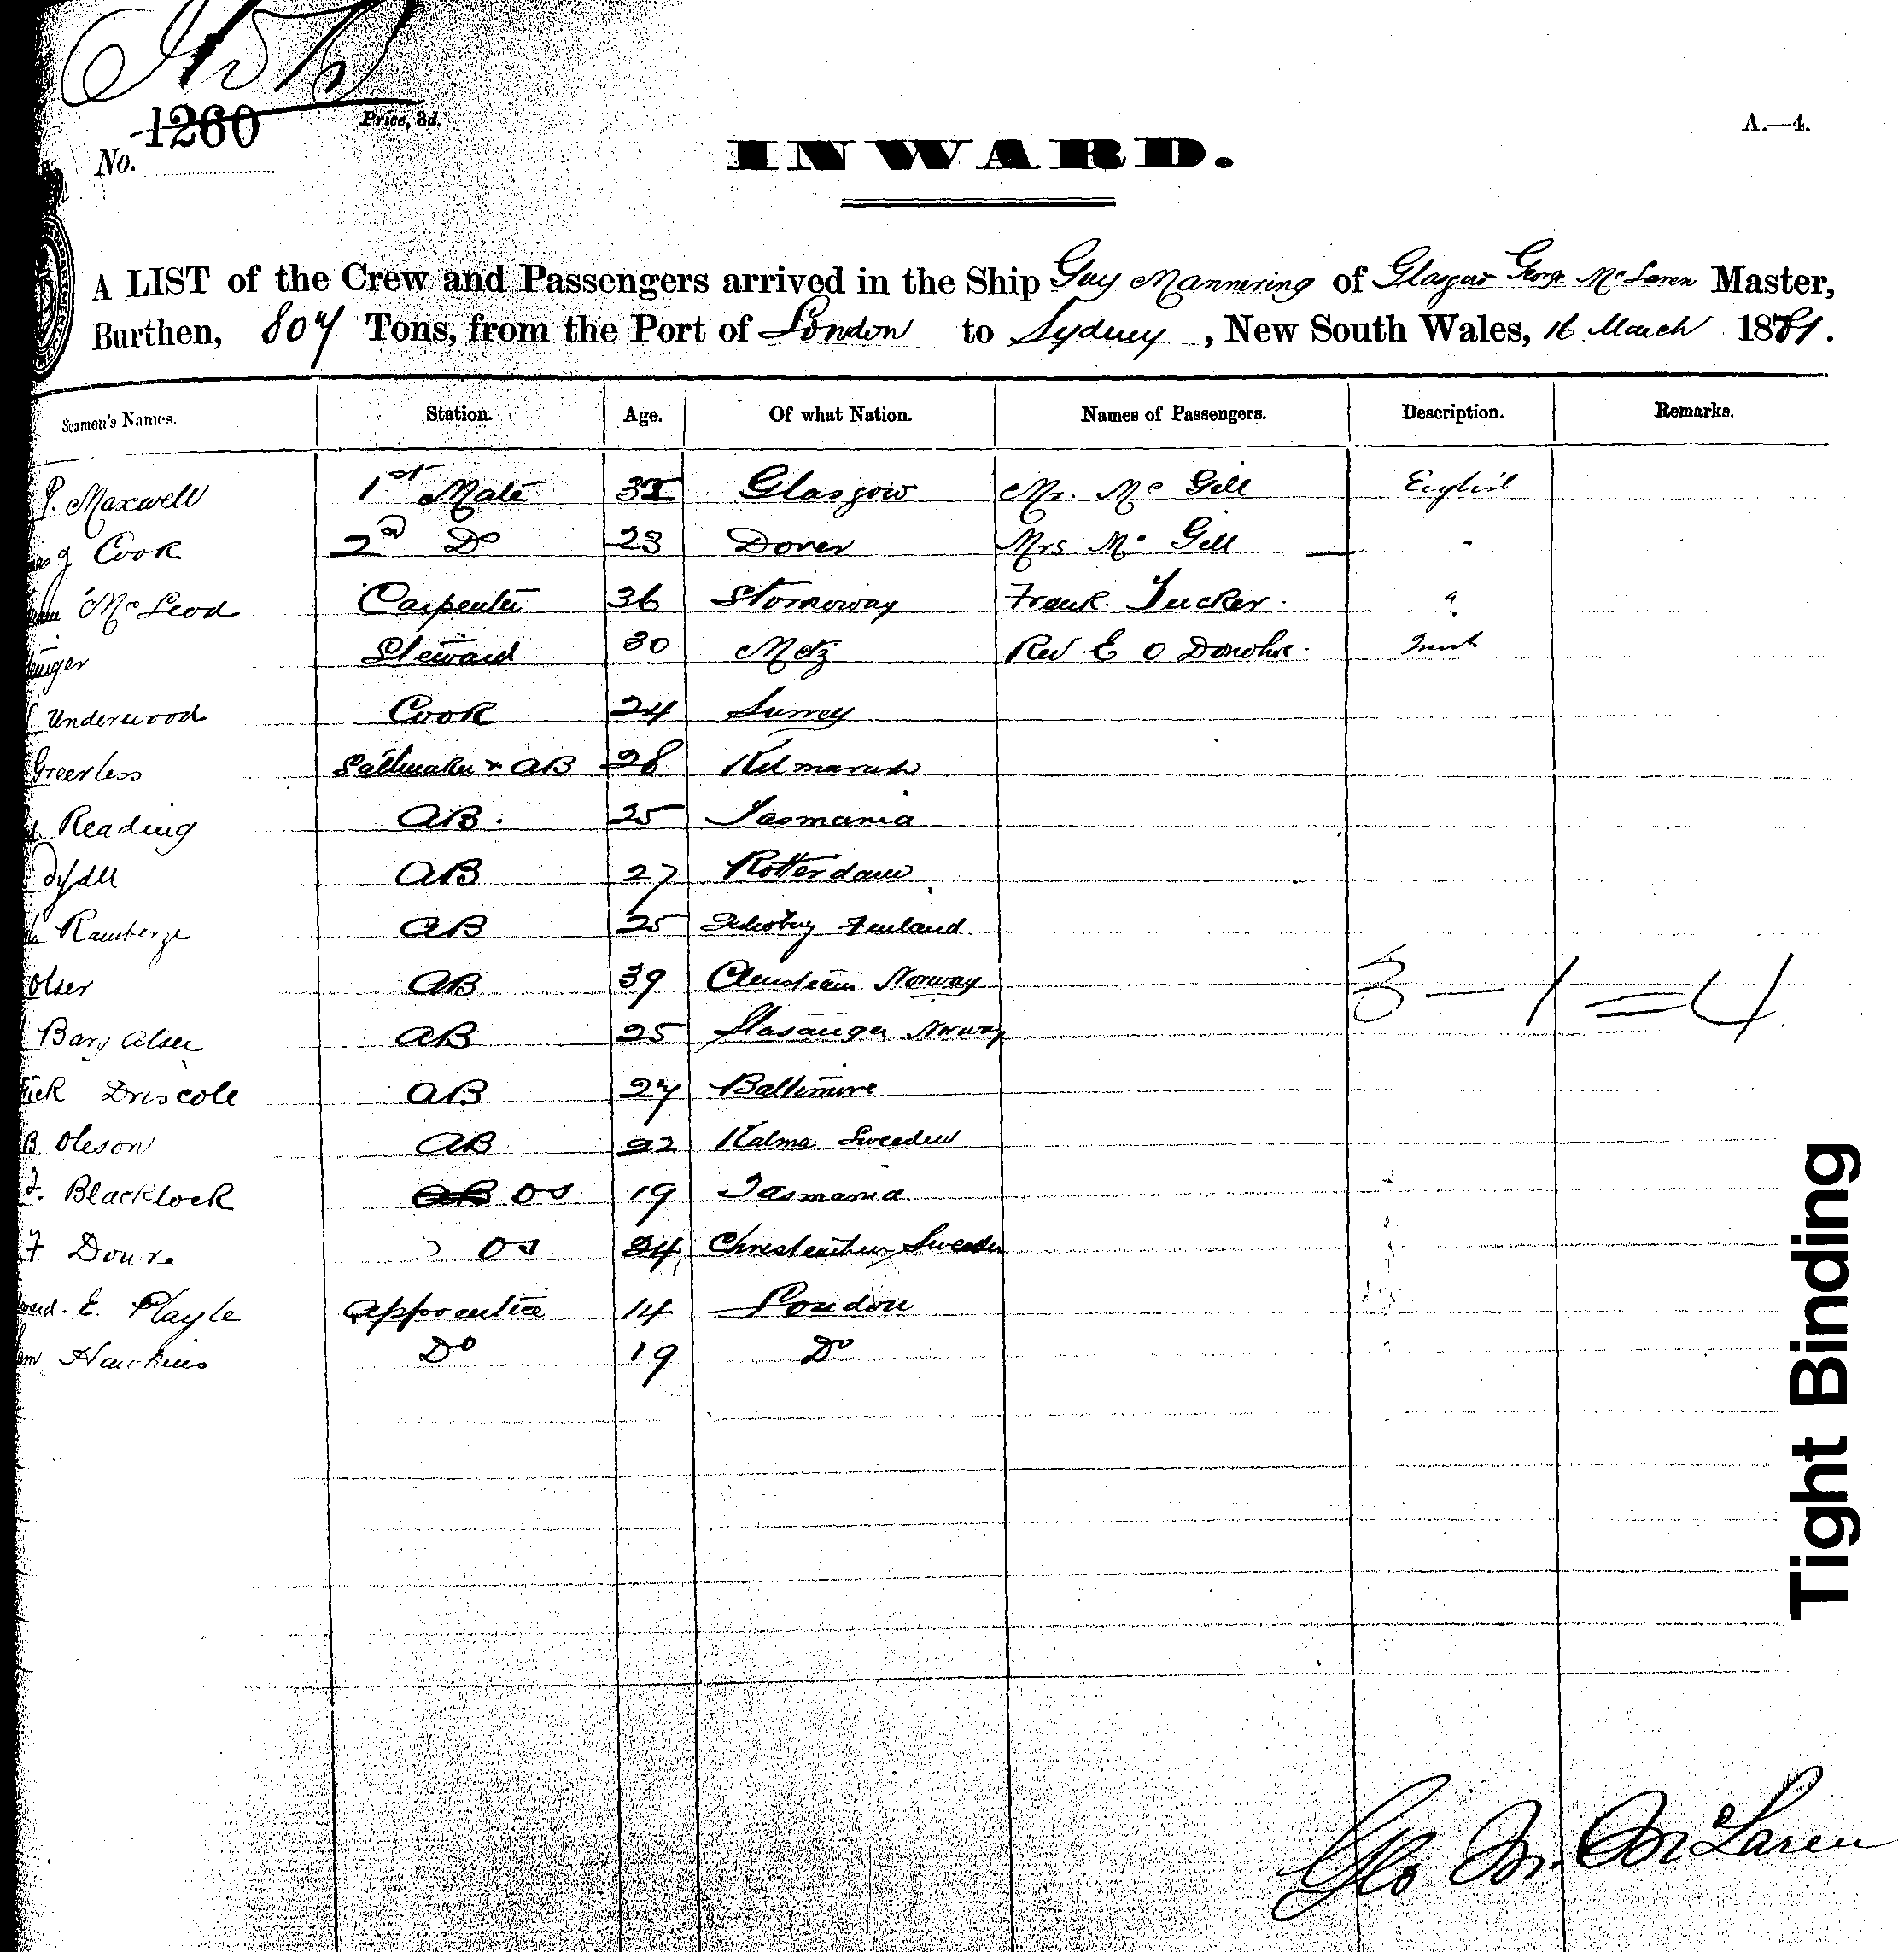 1260
Price, 3d.
No.
A.—4.
INWARD.
A LIST of the Crew and Passengers arrived in the Ship Guy Mannering of Glasgow George McLaren Master,
Burthen, 807 Tons, from the Port of London to Sydney, New South Wales, 16 March 1881.
Seamen's Names. Station. Age. Of what Nation. Names of Passengers. Description. Remarks.
P. Maxwell 1st Mate Glasgow Mr. Mc Gill English
Cook 2nd Do 23 Dover Mrs Mc Gill "
McLeod Carpenter 36 Stornoway Frank Tucker. "
Steward 30 Metz Rev. E O Donohoe.
Underwood Cook 24 Surrey
Greerless Sailmaker & AB 28
Reading AB. 25 Tasmania
AB 27 Rotterdam
AB 25
olser AB 39 Norway
AB 25 Norway
3 — 1 = 4
Driscole AB 27 Baltimore
B Oleson AB 22 Kalma Sweeden
Blacklock OS 19 Tasmania
F OS 24 Sweeden
E. Playle Apprentice 14 London
Hawkins Do 19 Do
Geo M. McLaren
Tight Binding